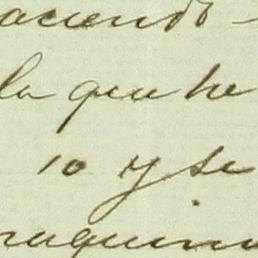 aciendo
la que he
10 y se
raquina